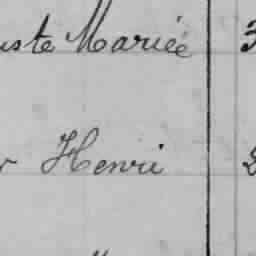 uste Mariée 3
r Henri 2